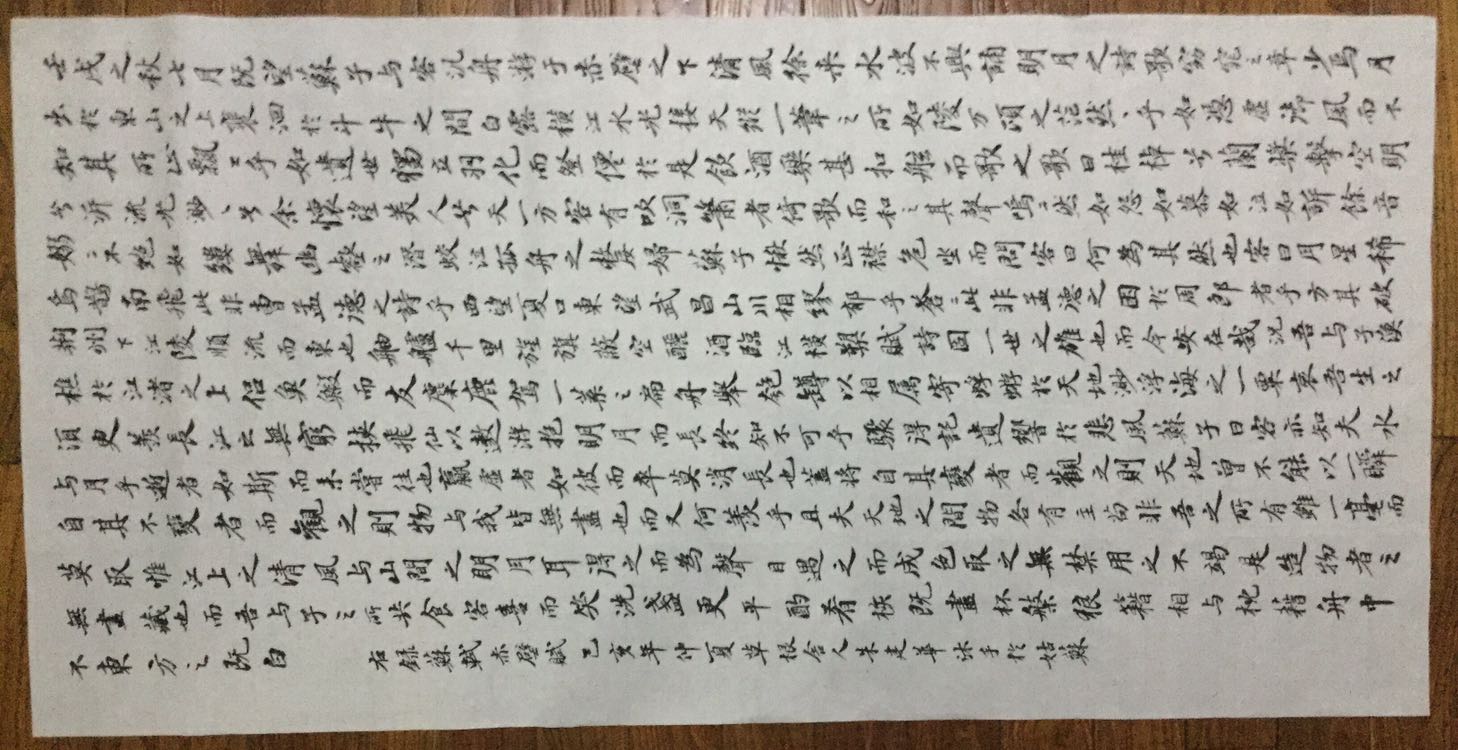 壬戌之秋七月既望蘇子与客汎舟游于赤壁之下清風徐来水波不興誦明月之詩歌窈窕之章少焉月
出於東山之上裵洄於斗牛之間白露横江水光接天縱一葦之所如陵万頃之茫然、乎如馮虚御風而不
知其所止飄〻乎如遺世獨立羽化而登僊於是飲酒樂甚扣舷而歌之歌曰桂棹兮蘭槳擊空明
兮泝流光渺、兮余懷望美人兮天一方客有吹洞簫者倚歌而和之其聲嗚〻然如怨如慕如泣如訴餘音
嫋〻不絶如縷舞幽壑之潛蛟泣孤舟之嫠婦蘇子愀然正襟危坐而問客曰何為其然也客曰月星稀
烏鵲南飛此非曹孟德之詩乎西望夏口東望武昌山川相繆郁乎蒼〻此非孟德之困於周郎者乎方其破
荊州下江陵順流而東也舳艫千里旌旗蔽空釃酒臨江横槊賦詩固一世之雄也而今安在哉況吾与子漁
樵於江渚之上侣魚鰕而友麋鹿駕一葉之扁舟舉匏罇以相属寄蜉蝣於天地渺浮海之一粟哀吾生之
須臾羨長江之無窮挟飛仙以遨游抱明月而長終知不可乎驟得託遺響於悲風蘇子曰客亦知夫水
与月乎逝者如斯而未嘗往也贏虚者如彼而卒莫消長也蓋将自其變者而觀之則天地曾不能以一瞬
自其不變者而觀之則物与我皆無盡也而又何羨乎且夫天地之間物各有主苟非吾之所有雖一毫而
莫取惟江上之清風与山間之明月耳得之而為聲目遇之而成色取之無禁用之不竭是造物者之
無盡藏也而吾与子之所共食客喜而笑洗盞更平酌肴核既盡杯槃狼籍相与枕藉舟中
不東方之既白　右録蘇軾赤壁賦己亥年仲夏草根舍人朱建華沐手於姑蘇